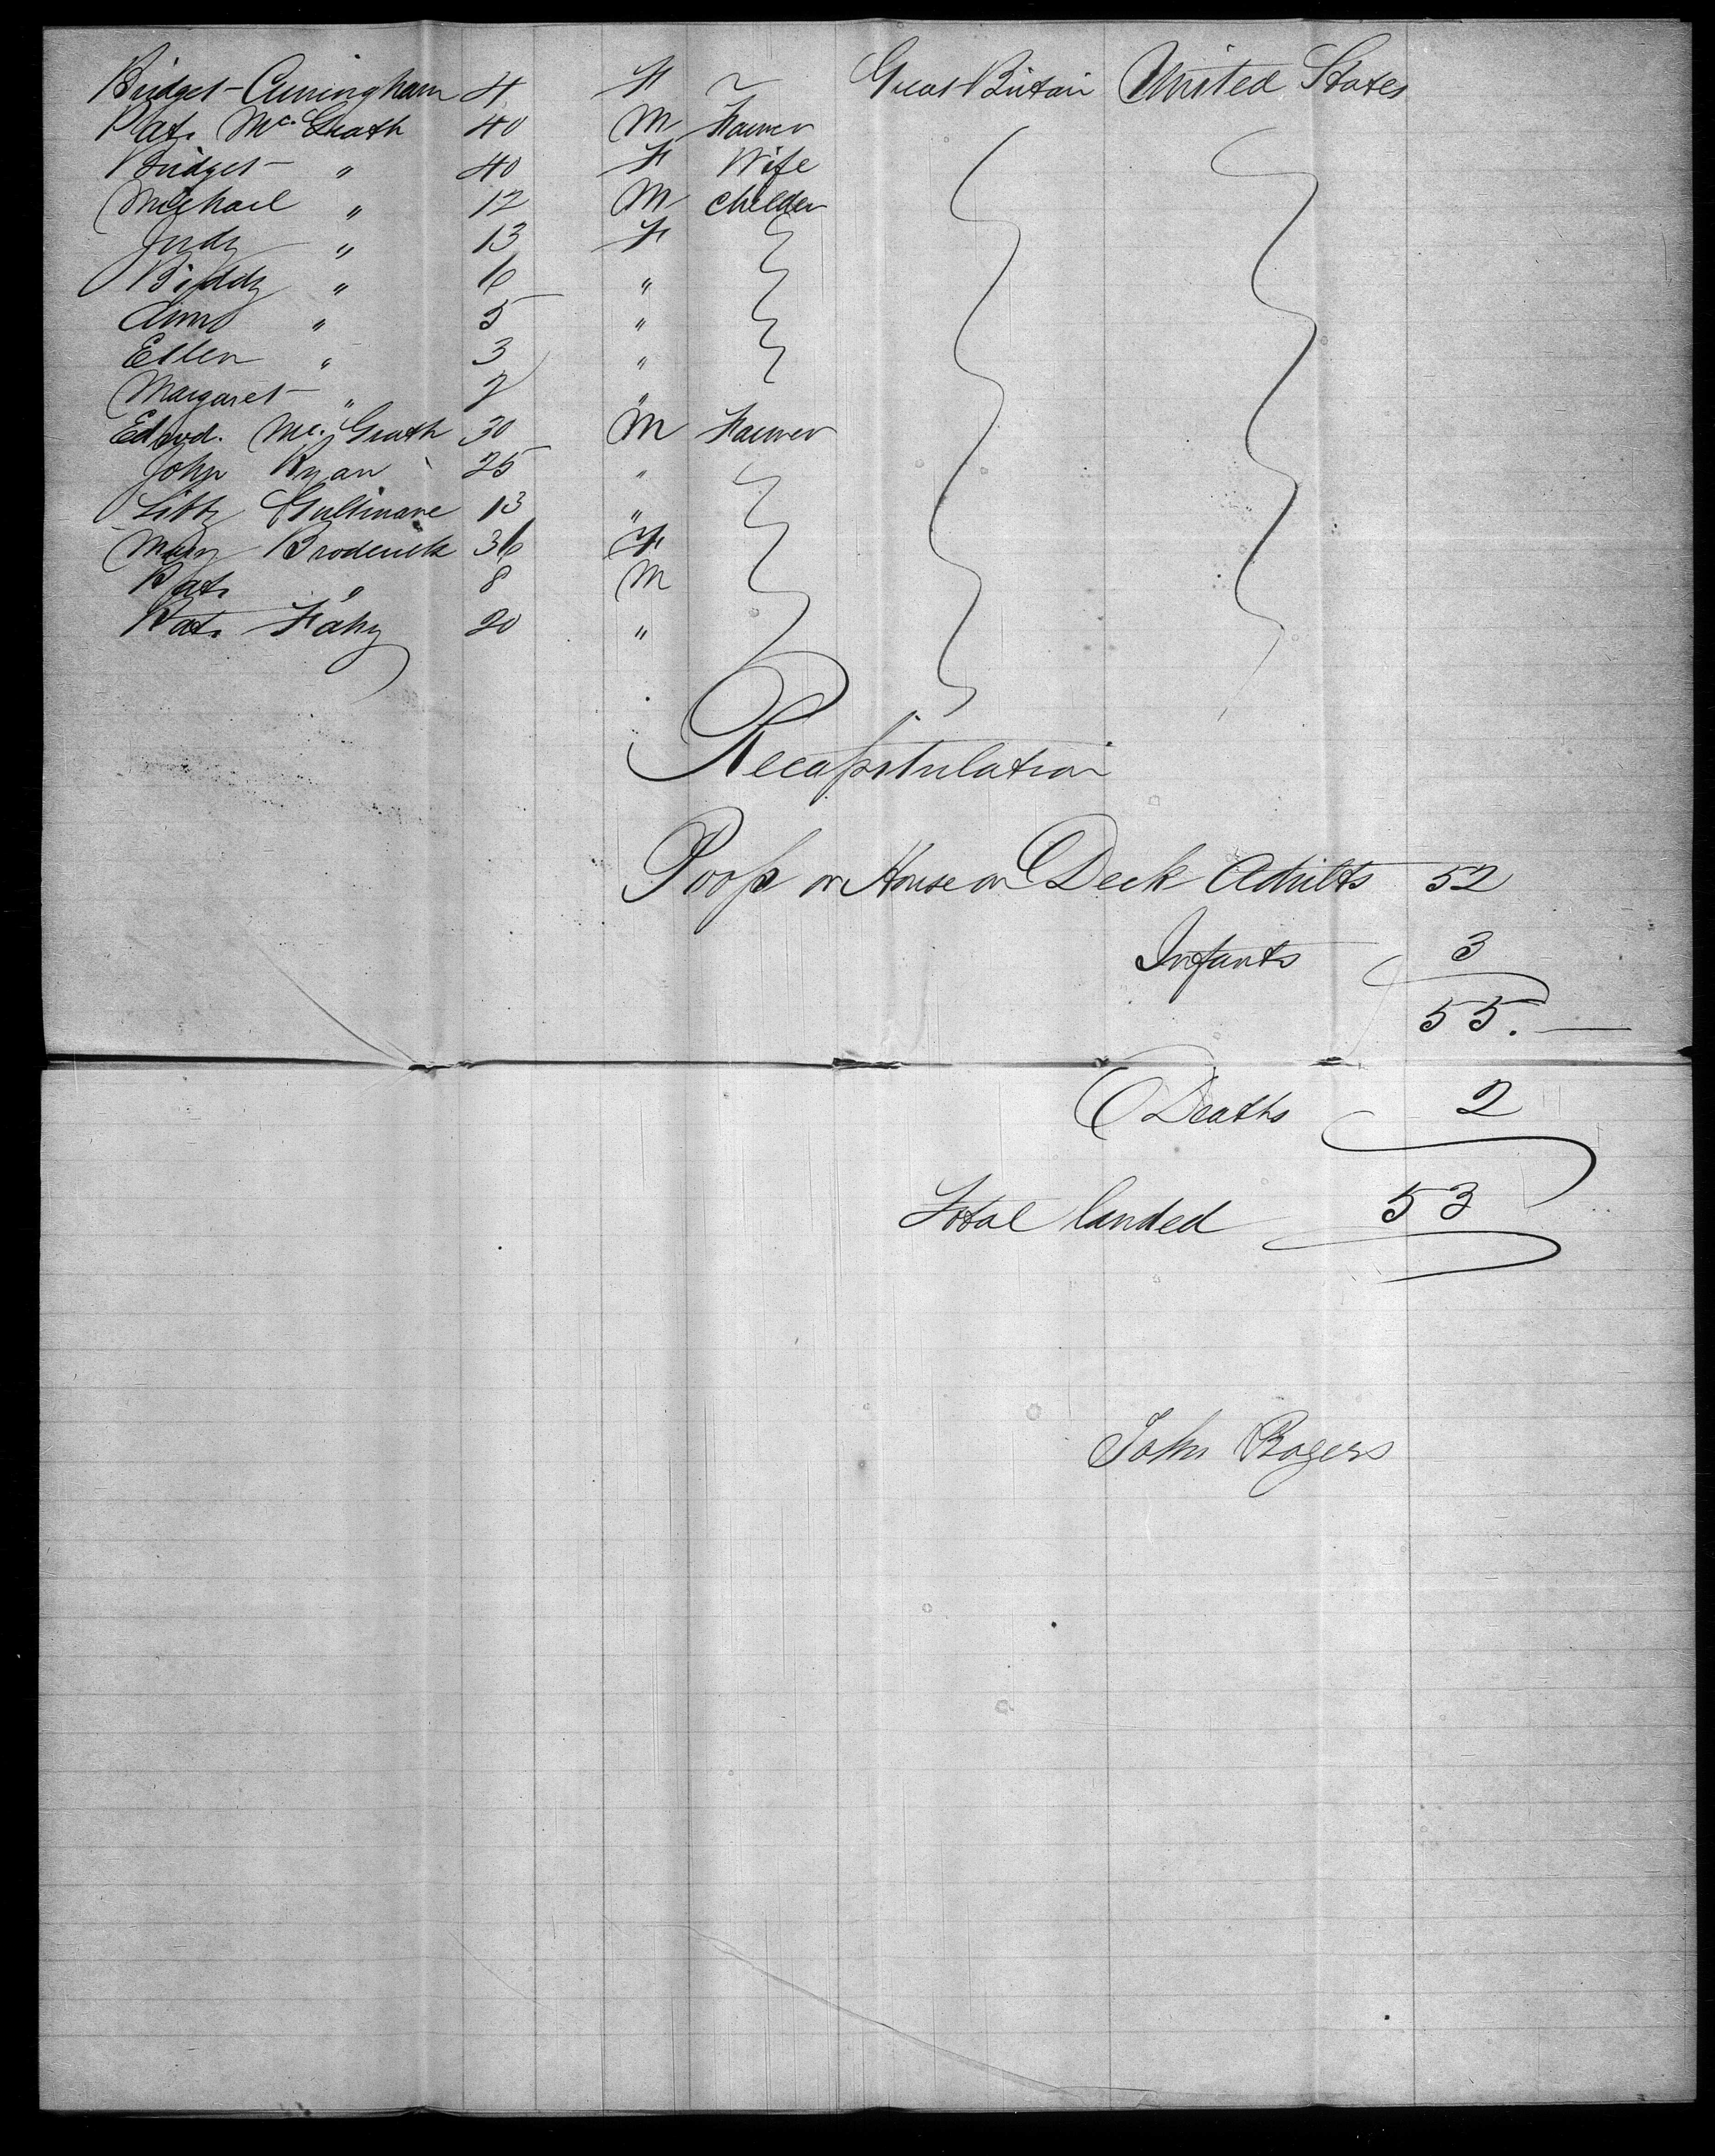 Bridget Cuningham 4 F ~ Great Britain United States
Pat. McGrath 40 M Farmer
Bridget " 40 F Wife
Michael " 12 M Childen
Judy " 13 F
Biddy " 6 "
Ann " 5 "
Ellen " 3 "
Margaret " 2 "
Edwd. Mc. Grath 30 M Farmer
John Ryan 25 "
13 "
Mary Broderick 36 F
Pat. " 8 M
Pat. Fahy 20 "
Recapitulation
Poop or House on Deck Adults 52
Infants 3
55.
Deaths 2
Total landed 53
John Rogers